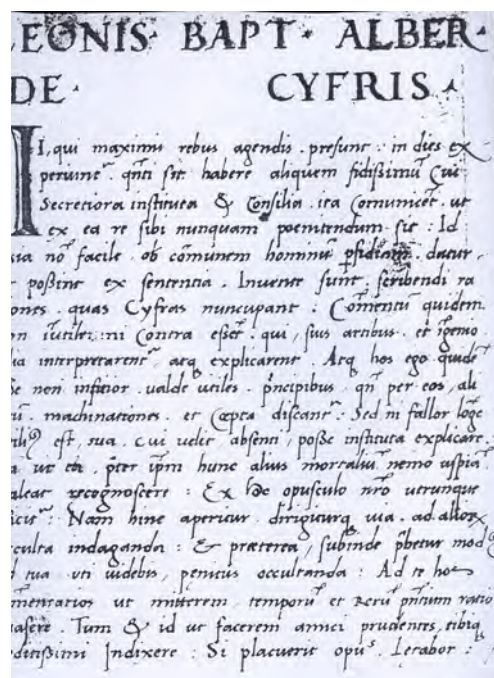 EONIS · BAPT · ALBER ·
DE · CYFRIS ·
Ii, qui maximis rebus agendis · presunt : in dies ex
periunt̃ · qñti sit habere aliquem fidissimũ Cui
Secretiora instituta & Consilia · ita Comunicet · ut
ex ea re sibi nunquam poenitendum sit : Id
ia nõ facile · ob cõmunem hominũ pfidiam datur ·
possint ex sententia · Invente sunt, scribendi ra
ones · quas Cyfras nuncupant : Cõmentũ quidem
ĩutile: ni Contra esset · qui, suis artibus · et ĩgenio
ia interpretarent̃ · atq explicarent · Atq hos ego quidẽ
non inficior · valde utiles · pñcipibus · qñ per eos, ali
ũ · machinationes · et Cœpta discant̃ · Sed ni fallor lõge
est, tua · Cui velit absenti, posse instituta explicare ·
ut tibi · pter ipm hunc alius mortaliũ nemo uspiã
aleat recognoscere : Ex Hoc opusculo nr̃o utrunque
Nam hinc aperitur · dirigiturq via · ad altiora
culta indaganda : & præterea, subinde p̃betur mod
tua uti videbis, penitus occultanda : Ad te hos
mentarios ut mitterem, temporũ et Rerũ
Tum & id ut facerem amici prudentes, tibiq
ditissimi Indixere : Si placuerit opus · letabor :